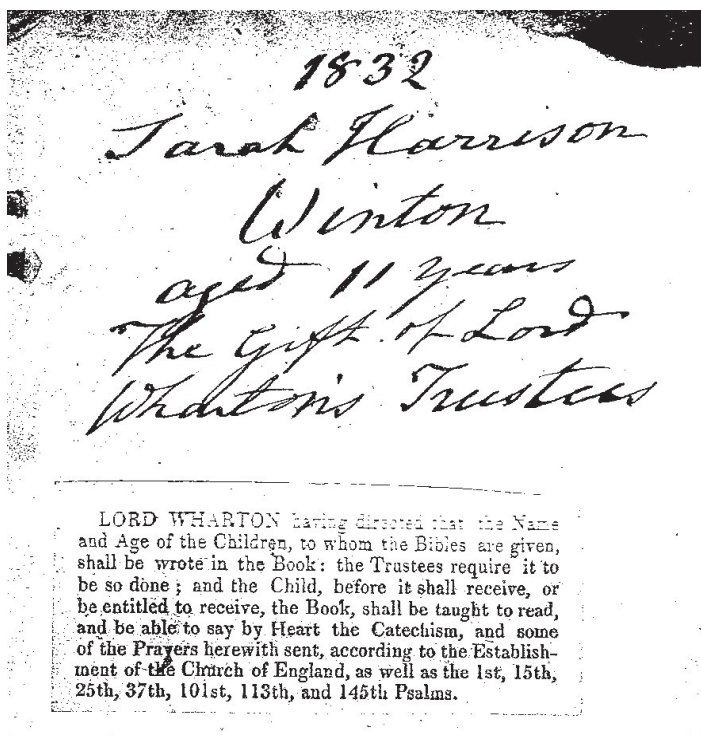 1832
Sarah Harrison
Winton
aged 11 years
The Gift of Lord
Wharton's Trustees
LORD WHARTON having directed that the Name
and Age of the Children, to whom the Bibles are given,
shall be wrote in the Book: the Trustees require it to
be so done; and the Child, before it shall receive, or
be entitled to receive, the Book, shall be taught to read,
and be able to say by Heart the Catechism, and some
of the Prayers herewith sent, according to the Establish-
ment of the Church of England, as well as the 1st, 15th,
25th, 37th, 101st, 113th, and 145th Psalms.